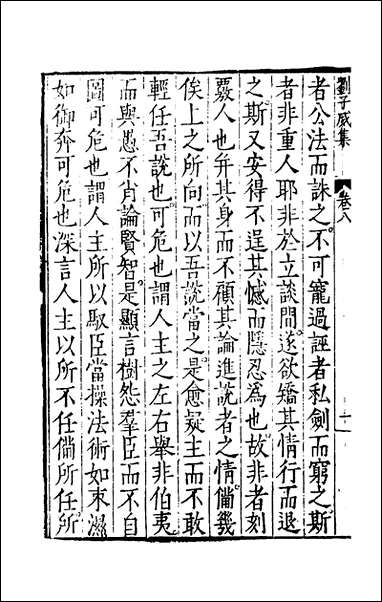 劉子威集 卷八
者公法而誅之不可寵過誣者私劍而窮之斯
者非重人耶非於立談間遂欲矯其情行而退
之斯又安得不逞其憾而隱忍為也故非者刻
覈人也并其身而不顧其論進說者之情備幾
俟上之所向而以吾說當之是愈疑主而不敢
輕任吾說也可危也謂人主之左右舉非伯夷
而與愚不肖論賢智是顯言樹怨羣臣而不自
圖可危也謂人主所以馭臣當操法術如束濕
如御奔可危也深言人主以所不任倘所任所